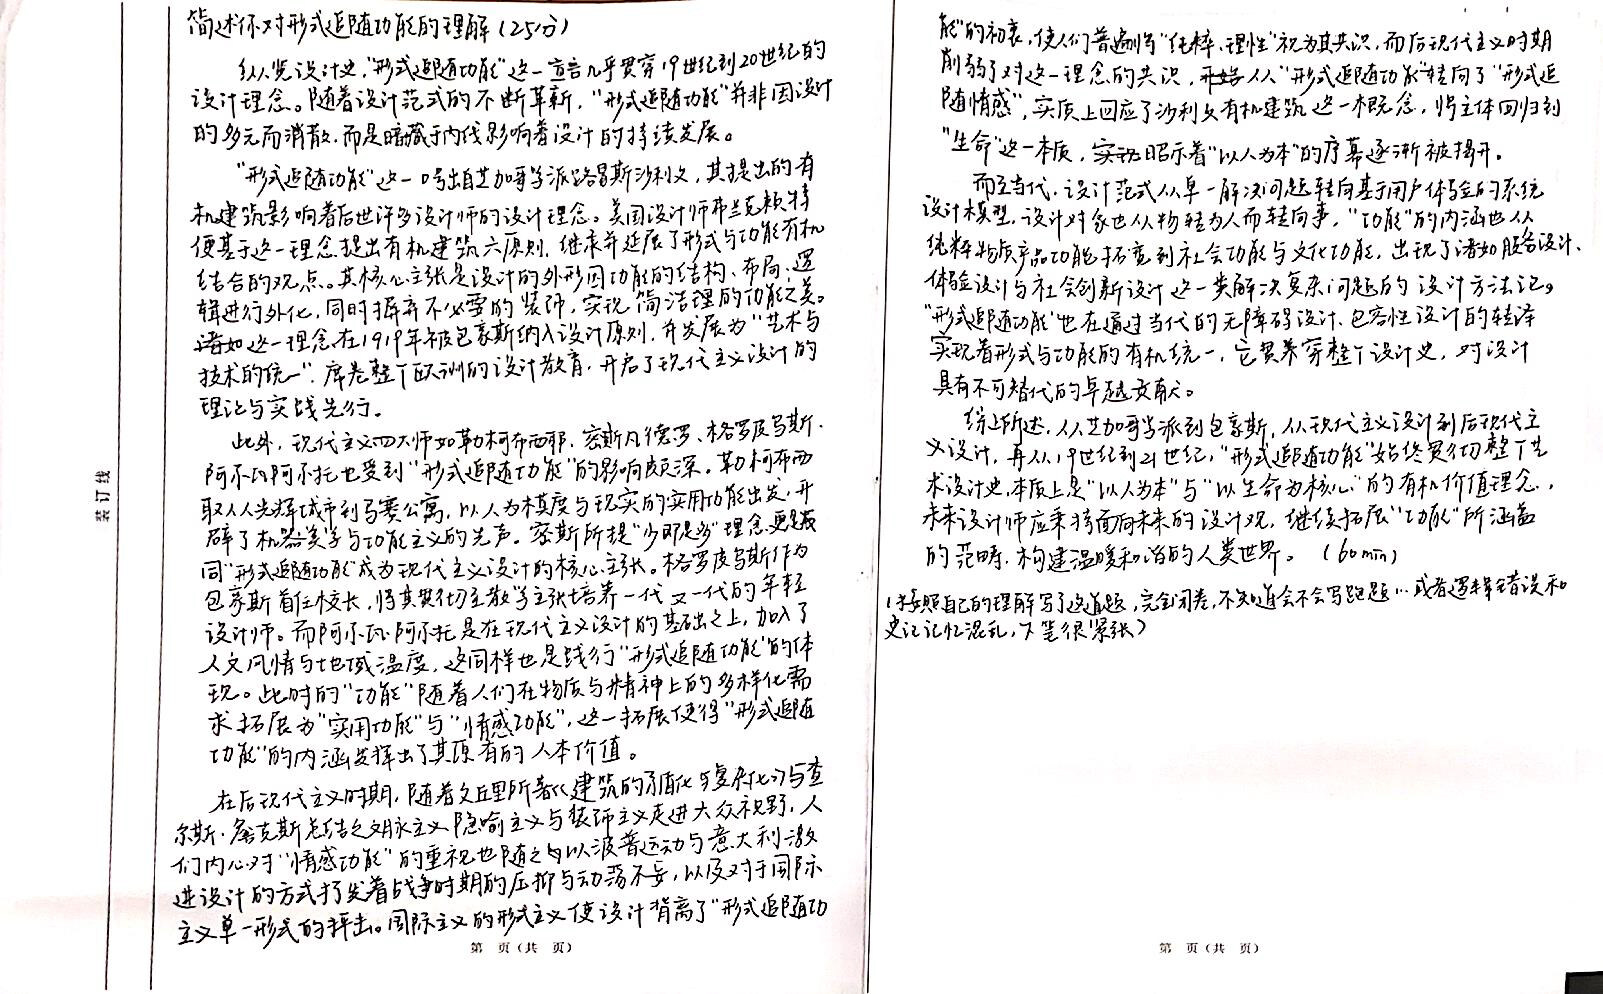 简述你对形式追随功能的理解（25分）
纵览设计史，“形式追随功能”这一宣言几乎贯穿19世纪到20世纪的
设计理念。随着设计范式的不断革新，“形式追随功能”并非因设计
的多元而消散，而是暗藏于内线影响着设计的持续发展。
“形式追随功能”这一口号出自芝加哥学派路易斯沙利文，其提出的有
机建筑影响着后世许多设计师的设计理念。美国设计师弗兰克赖特
便基于这一理念提出有机建筑六原则，继承并延展了形式与功能有机
结合的观点。其核心主张是设计的外形因功能的结构、布局、逻
辑进行外化，同时摒弃不必要的装饰，实现简洁理的功能之美。
诸如这一理念在1919年被包豪斯纳入设计原则，并发展为“艺术与
技术的统一”，席卷整个欧洲的设计教育，开启了现代主义设计的
理论与实践先行。
此外，现代主义四大师如勒柯布西耶、密斯凡德罗、格罗皮乌斯、
阿尔瓦阿尔托也受到“形式追随功能”的影响颇深。勒柯布西
取从光辉城市到马赛公寓，以人为模度与现实的实用功能出发，开
辟了机器美学与功能主义的先声。密斯所提“少即是多”理念更是成
同“形式追随功能”成为现代主义设计的核心主张。格罗皮乌斯作为
包豪斯首任校长，将其贯彻至教学主张培养一代又一代的年轻
设计师。而阿尔瓦·阿尔托是在现代主义设计的基础之上，加入了
人文风情与地域温度，这同样也是践行“形式追随功能”的体
现。此时的“功能”随着人们在物质与精神上的多样化需
求拓展为“实用功能”与“情感功能”，这一拓展使得“形式追随
功能”的内涵发挥出了其原有的人本价值。
在后现代主义时期，随着文丘里所著《建筑的矛盾化与复杂化》与查
尔斯·詹克斯总结之文脉主义、隐喻主义与装饰主义走进大众视野，人
们内心对“情感功能”的重视也随之与以波普运动与意大利激
进设计的方式抒发着战争时期的压抑与动荡不安，以及对于国际
主义单一形式的抨击。国际主义的形式主义使设计背离了“形式追随功
能”的初衷，使人们普遍将“纯粹、理性”视为其共识，而后现代主义时期
削弱了对这一理念的共识，开始从“形式追随功能”转向了“形式追
随情感”，实质上回应了沙利文有机建筑这一概念，将主体回归到
“生命”这一本质，实现昭示着“以人为本”的序幕逐渐被揭开。
而至当代，设计范式从单一解决问题转向基于用户体验的系统
设计模型，设计对象也从物转为人而转向事，“功能”的内涵也从
纯粹物质产品功能拓宽到社会功能与文化功能，出现了诸如服务设计、
体验设计与社会创新设计这一类解决复杂问题的设计方法论。
“形式追随功能”也在通过当代的无障碍设计、包容性设计的转译
实现着形式与功能的有机统一，它贯穿整个设计史，对设计
具有不可替代的卓越贡献。
综上所述，从芝加哥学派到包豪斯，从现代主义设计到后现代主
义设计，再从19世纪到21世纪，“形式追随功能”始终贯彻整个艺
术设计史，本质上是“以人为本”与“以生命为核心”的有机价值理念，
未来设计师应秉持面向未来的设计观，继续拓展“功能”所涵盖
的范畴，构建温暖和谐的人类世界。（60min）
（按照自己的理解写了这道题，完全闭卷，不知道会不会写跑题…或者逻辑错误和
史论记忆混乱，下笔很紧张）
装订线
第 页（共 页）
第 页（共 页）